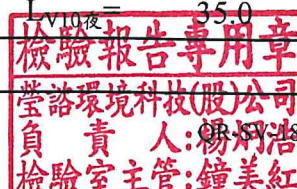 L_V10夜= 35.0
檢驗報告專用章
瑩諮環境科技(股)公司
負責人:楊炯浩
QR-SV-18
檢驗室主管:鐘美紅